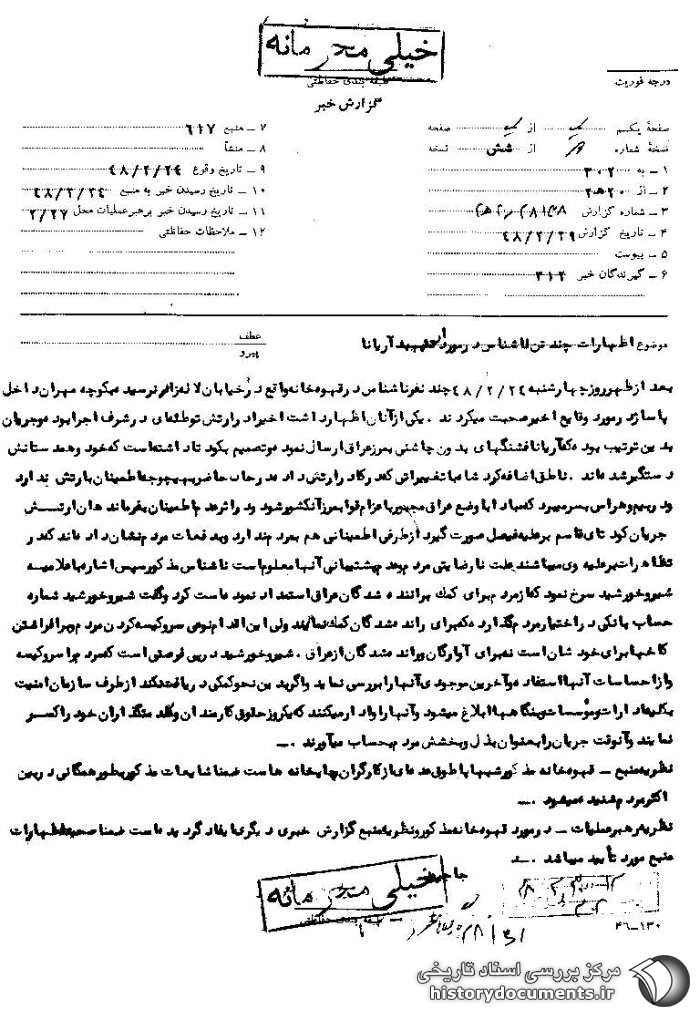 خیلی محرمانه
طبقه بندی حفاظتی
درجه فوریت
گزارش خبر
صفحهٔ یکم از صفحه
نسخهٔ شماره از شش نسخه
۱ – به ۳۰۲
۲ – از ۲۰ ه ۲
۳ – شماره گزارش
۴ – تاریخ گزارش ۴۸/۲/۲۹
۵ – پیوست
۶ – گیرندگان خبر ۳۱۲
۷ – منبع ۶۱۷
۸ – منشأ
۹ – تاریخ وقوع ۴۸/۲/۲۴
۱۰ – تاریخ رسیدن خبر به منبع ۴۸/۲/۲۴
۱۱ – تاریخ رسیدن خبر برهبر عملیات محل ۲/۲۷
۱۲ – ملاحظات حفاظتی
موضوع اظهارات چند تن ناشناس در مورد آریانا
عطف
پیرو
بعد از ظهر روز چهارشنبه ۴۸/۲/۲۴ چند نفر ناشناس در قهوه خانه واقع در خیابان لاله زار نرسیده بکوچه مهران داخل
پاساژ در مورد وقایع اخیر صحبت میکردند . یکی از آنان اظهار داشت اخیرا در ارتش توطئه ای در شرف اجرا بود و جریان
بدین ترتیب بوده که آریانا فشنگهای بدون چاشنی بمرز عراق ارسال نموده و تصمیم بکودتا داشته است که خود و همدستانش
دستگیر شده اند . ناطق اضافه کرد شاه با تغییراتی که در کادر ارتش داد در حال حاضر بهیچوجه اطمینان بارتش ندارد
و در بیم و هراس بسر میبرد که مبادا با وضع عراق مجبور باعزام قوا بمرز آن کشور شود و در اثر عدم اطمینان بفرماندهان ارتش
جریان کودتای قاسم بر علیه فیصل صورت گیرد از طرفی اطمینانی هم بمردم ندارد و بدفعات مردم نشان داده اند که در
تظاهرات بر علیه وی میباشند علت نارضایتی مردم و عدم پشتیبانی آنها معلوم است ناشناس مذکور سپس اشاره باعلامیه
شیر و خورشید سرخ نمود که از مردم برای کمک برانده شدگان عراق استمداد نموده است کرد و گفت شیر و خورشید شماره
حساب بانکی در اختیار مردم گذارده که برای رانده شدگان کمک نمایند ولی این اقدام نوعی سرو کیسه کردن مردم و برافراشتن
کاخها برای خودشان است نه برای آوارگان و رانده شدگان از عراق . شیر و خورشید در پی فرصتی است که مردم را سرو کیسه
و از احساسات آنها استفاده و آخرین موجودی آنها را بررسی نماید و اگر بدین نحو کمکی دریافت نکند از طرف سازمان امنیت
بکلیه ادارات و مؤسسات و بنگاهها ابلاغ میشود و آنها را وادار میکنند که یکروز حقوق کارمندان و خدمتگذاران خود را کسر
نمایند و آنوقت جریان را بعنوان بذل و بخشش مردم بحساب میآورند .
نظریه منبع – قهوه خانه مذکور شبها پاطوق عده ای از کارگران چاپخانه هاست ضمنا شایعات مذکور بطور همگانی در بین
اکثر مردم شنیده میشود .
نظریه رهبر عملیات – در مورد قهوه خانه مذکور و نظریه منبع گزارش خبری دیگری ایفاد گردیده است ضمنا صحت اظهارات
منبع مورد تأیید میباشد .
خیلی محرمانه
طبقه بندی حفاظتی
۴۶–۱۳۰
مرکز بررسی اسناد تاریخی
historydocuments.ir